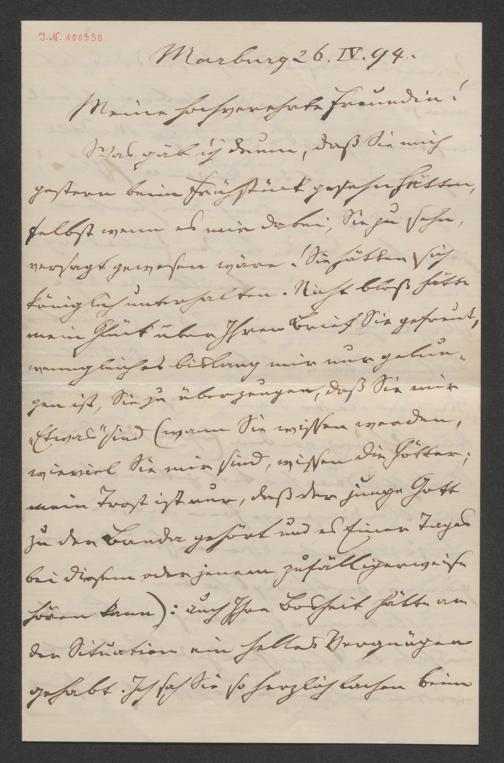 J.N. 100330
Marburg 26. IV. 94.
Meine hochverehrte Freundin!
Was gäb' ich drum, daß Sie mich
gestern beim Frühstück gesehn hätten,
selbst wenn es mir dabei, Sie zu sehn,
versagt gewesen wäre! Sie hätten sich
königlich unterhalten. Nicht bloß hätte
mein Glück über Ihren Brief Sie gefreut,
wenngleich es bislang mir nur gelun-
gen ist, Sie zu überzeugen, daß Sie mir
„Etwas" sind (wann Sie wissen werden,
wieviel Sie mir sind, wissen die Götter;
mein Trost ist nur, daß der junge Gott
zu der Bande gehört und es Einer Tages
bei diesem oder jenem zufälligerweise
hören kann): auch Ihre Bosheit hätte an
der Situation ein helles Vergnügen
gehabt. Ich sah Sie so herzlich lachen beim